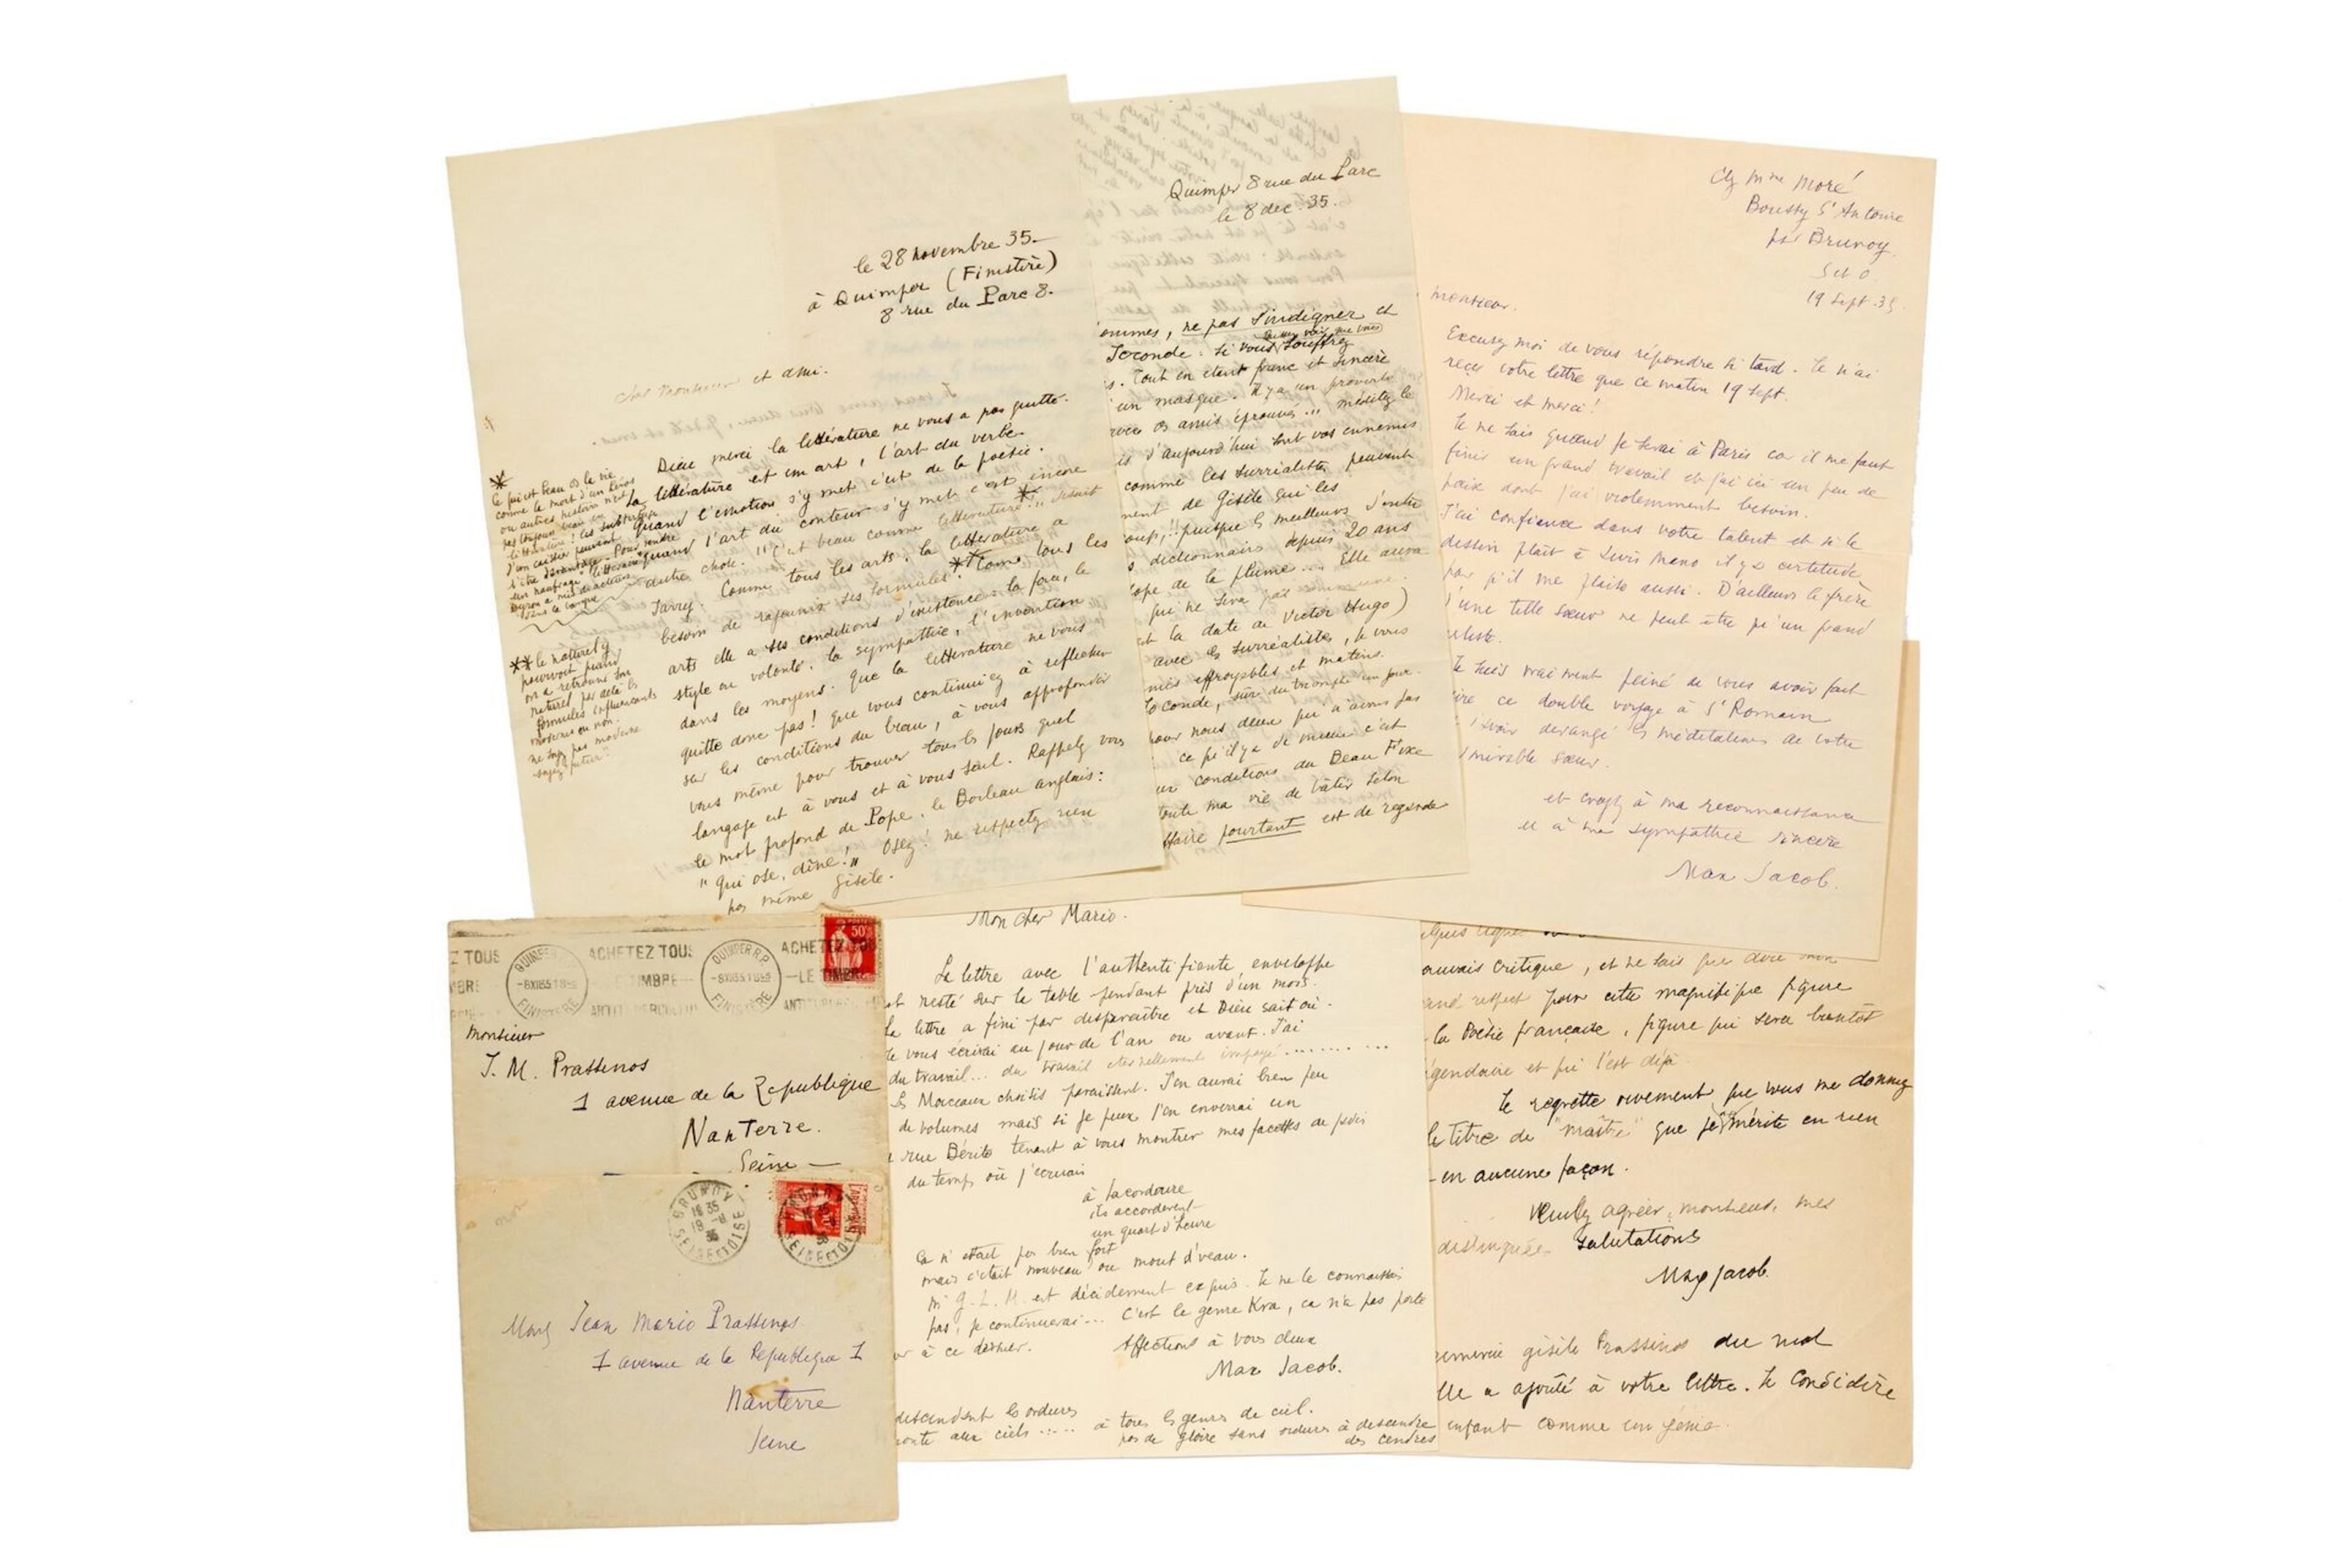 le 28 novembre 35.
à Quimper (Finistère)
8 rue du Parc 8.
cher Monsieur et ami.
Dieu merci la littérature ne vous a pas quitté.
la littérature est un art, l'art du verbe.
quand l'émotion s'y met c'est de la poésie.
quand l'art du conteur s'y met c'est encore
autre chose. "C'est beau comme littérature!" disait
Jarry. Comme tous les arts, la littérature a
besoin de rajeunir ses formules. ** Comme tous les
arts elle a ses conditions d'existence: la force, le
style ou volonté, la sympathie, l'invention
dans les moyens. Que la littérature ne vous
quitte donc pas! que vous continuiez à réfléchir
sur les conditions du beau, à vous approfondir
vous même pour trouver tous les jours quel
langage est à vous et à vous seul. Rappelez vous
le mot profond de Pope, le Boileau anglais:
"qui ose, dîne!" Osez! ne respectez rien
pas même Gisèle.
*
ce qui est beau ds la vie
comme la mort d'un héros
ou autres histoires n'est
pas toujours beau en
littérature!
** le naturel y
pourvoit quand
on a retrouvé son
naturel par delà les
formules influençants
modernes ou non.
ne soyez pas moderne
soyez futur"
Quimper 8 rue du Parc
le 8 dec. 35.
ommes, ne pas s'indigner et
Joconde. Si vous souffrez
s. Tout en étant franc et sincère
un masque. Il y a un proverbe
avec ds amis éprouvés." méditez le
is d'aujourd'hui sont vos ennemis
comme les surréalistes peuvent
ment de Gisèle qui les
oup!! puisque les meilleurs d'entre
s dictionnaire depuis 20 ans
ope de la plume... Elle aura
qui ne sera pas
st la date de Victor Hugo)
avec les surréalistes, je vous
mies effroyables et matins.
Joconde, sûre du triomphe un jour.
pour nous deux qui n'avons pas
ce qu'il y a de mieux c'est
ux conditions du Beau Fixe
toute ma vie de bâtir selon
ttaire pourtant est de regarde
Chz Mme Moré
Boussy St Antoine
par Brunoy
S et O
19 Sept. 35
Monsieur.
Excusez moi de vous répondre si tard. Je n'ai
reçu votre lettre que ce matin 19 Sept.
Merci et merci!
Je ne sais quand je serai à Paris car il me faut
finir un grand travail et j'ai ici un peu de
paix dont j'ai violemment besoin.
J'ai confiance dans votre talent et si le
dessin plaît à Levis Mano il y a certitude
pour qu'il me plaise aussi. D'ailleurs le frère
d'une telle sœur ne peut être qu'un grand
artiste.
Je suis vraiment peiné de vous avoir fait
ire ce double voyage à St Romain
avoir dérangé les méditations de votre
dmirable sœur.
et croyez à ma reconnaissance
et à ma sympathie sincère
Max Jacob.
Z TOUS
ACHETEZ TOUS
ACHETEZ TOUS
LE TIMBRE
QUIMPER R.P.
FINISTERE
50c
Monsieur
J. M. Prassinos
1 avenue de la République
Nanterre.
Seine
BRUNOY
SEINE ET OISE
Mons Jean Mario Prassinos
1 avenue de la République 1
Nanterre
Seine
Mon cher Mario.
La lettre avec l'authentifiante enveloppe
est resté sur la table pendant près d'un mois.
La lettre a fini par disparaître et Dieu sait où.
Je vous écrirai au jour de l'an ou avant. J'ai
du travail... du travail éternellement impayé .........
Les Morceaux choisis paraissent. J'en aurai bien peu
de volumes mais si je peux j'en enverrai un
rue Bérite tenant à vous montrer mes facettes de
du temps où j'écrivais
à Lacordaire
ils accordèrent
un quart d'heure
Ca n'était pas bien fort
mais c'était nouveau ou mout d'veau.
Mr G.L.M. est décidément exquis. Je ne le connaissais
pas, je continuerai... C'est le genre Kra, ca n'a pas porté
à ce dernier.
Affections à vous deux
Max Jacob.
descendent les ordures
monte aux ciels ..... à tous les genres de ciel.
pas de gloire sans ordures à descendre
des cendres
auvais critique, et ne sais que dire mon
and respect pour cette magnifique figure
la Poësie française, figure qui sera bientôt
égendaire et qui l'est déjà.
Je regrette vivement que vous me donniez
le titre de "maître" que je mérite en rien
en aucune façon.
Veuillez agréer, monsieur, mes
distinguées salutations
Max Jacob.
remercie Gisèle Prassinos du mot
elle a ajouté à votre lettre. Je considère
enfant comme un génie.